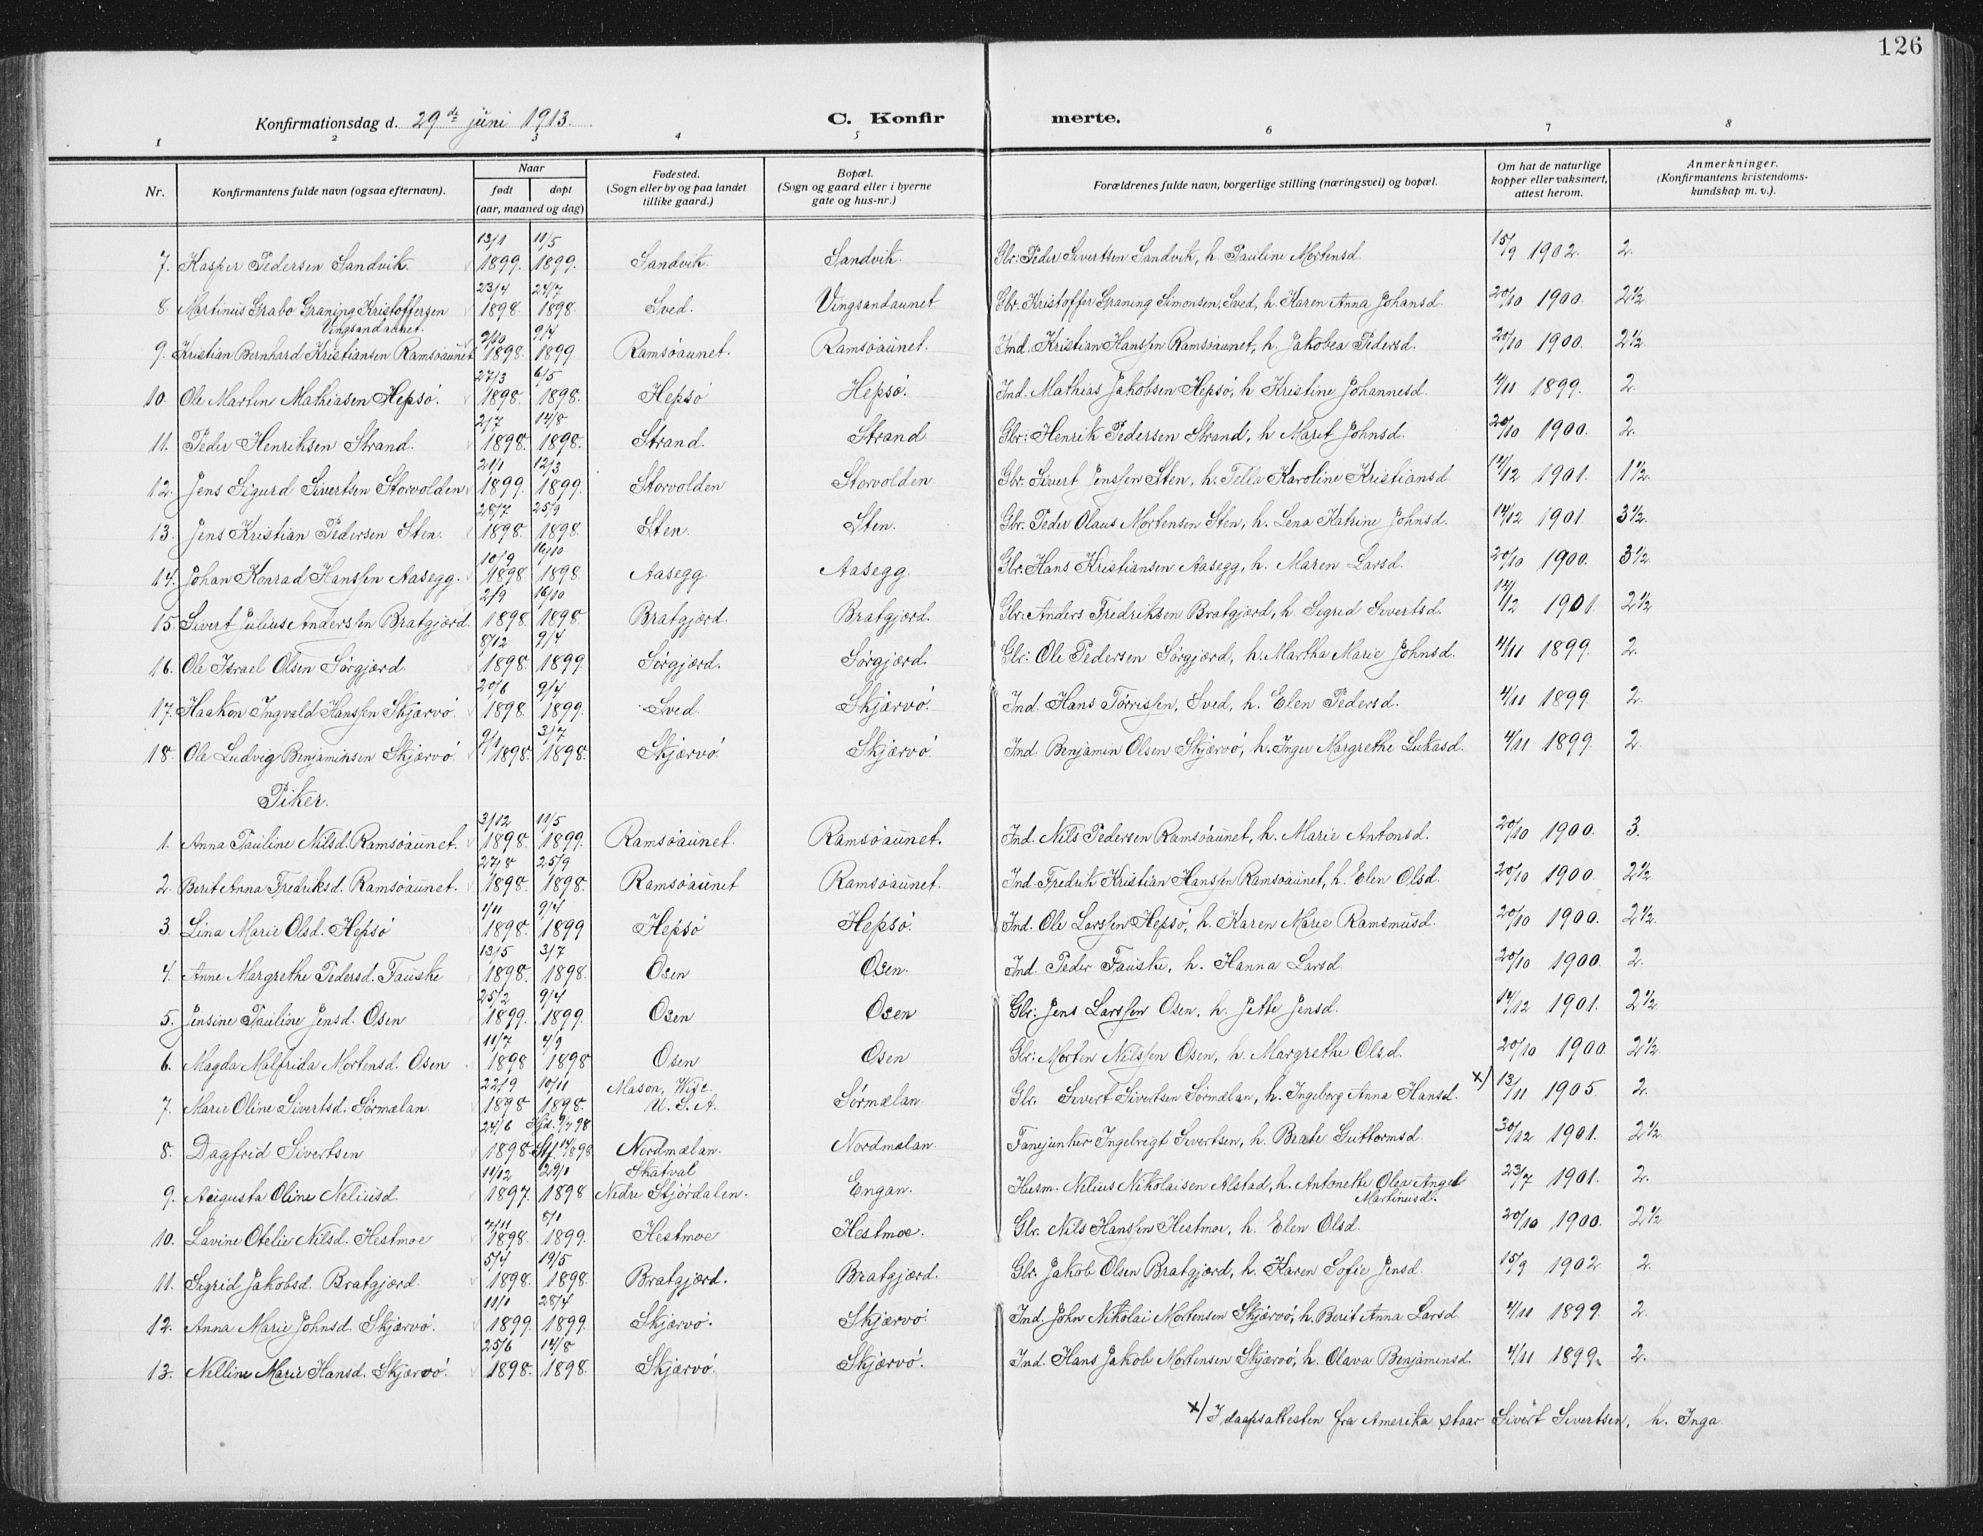 126
Konfirmationsdag d. 29de juni 1913. C. Konfirmerte.
1 2 3 4 5 6 7 8
Nr. Konfirmantens fulde navn (ogsaa efternavn). Naar født døpt (aar, maaned og dag) Fødested. (Sogn eller by og paa landet tillike gaard.) Bopæl. (Sogn og gaard eller i byerne gate og hus-nr.) Forældrenes fulde navn, borgerlige stilling (næringsvei) og bopæl. Om hat de naturlige kopper eller vaksinert, attest herom. Anmerkninger. (Konfirmantens kristendoms-kundskap m. v.).
7. Kasper Pedersen Sandvik. 13/1 1899. 11/5 1899. Sandvik. Sandvik. Gbr: Peder Sivertsen Sandvik, h. Pauline Mortensd. 15/9 1902. 2.
8. Martinus Grabo Graning Kristoffersen Vingsandaunet. 23/4 1898. 24/7 1898. Sved. Vingsandaunet Gbr. Kristoffer Graning Simonsen, Sved, h. Karen Anna Johansd. 20/10 1900. 2½
9. Kristian Bernhard Kristiansen Ramsöaunet 2/10 1898. 9/4 1899. Ramsöaunet. Ramsöaunet. Ind. Kristian Hanssen Ramsöaunet, h. Jakobea Pedersd. 20/10 1900. 2½
10. Ole Martin Mathiasen Hepsö. 27/3 1898. 6/5 1898. Hepsö Hepsö. Ind. Mathias Jakobsen Hepsö, h. Kristine Johannesd. 4/11 1899. 2.
11. Peder Henriksen Strand. 2/7 1898. 14/8 1898. Strand. Strand Gbr: Henrik Pedersen Strand, h. Marit Johnsd. 20/10 1900. 2.
12. Jens Sigurd Sivertsen Storvolden 21/1 1899. 12/3 1899. Storvolden Storvolden. Gbr. Sivert Jenssen Sten, h. Pella Karoline Kristiansd. 14/12 1901. 1½.
13. Jens Kristian Pedersen Sten. 28/7 1898. 25/9 1898. Sten. Sten. Gbr. Peder Olaus Mortensen Sten, h. Lena Katrine Johnsd. 14/12 1901. 3½.
14. Johan Konrad Hanssen Aasegg. 10/9 1898 16/10 1898. Aasegg Aasegg. Gbr. Hans Kristiansen Aasegg, h. Maren Larsd. 20/10 1900. 3½
15. Sivert Julius Anderssen Bratgjørd. 2/9 1898. 16/10 1898. Bratgjørd. Bratgjørd. Gbr: Anders Fredriksen Bratgjørd, h. Sigrid Sivertsd. 14/12 1901. 2½
16. Ole Israel Olsen Sørgjærd. 8/12 1898. 9/4 1899. Sørgjærd. Sørgjærd. Gbr: Ole Pedersen Sørgjærd, h. Martha Marie Johnsd. 4/11 1899. 2.
17. Haakon Ingvald Hanssen Skjærvö. 20/6 1898. 9/4 1899. Sved. Skjærvö. Ind. Hans Tørrissen, Sved, h. Elen Pedersd. 4/11 1899. 2.
18. Ole Ludvig Benjaminsen Skjærvö 9/1 1898. 3/7 1898. Skjærvö. Skjærvö. Ind. Benjamin Olsen Skjærvö, h. Inger Margrethe Lukasd. 4/11 1899. 2.
Piker.
1. Anna Pauline Nilsd. Ramsöaunet. 3/12 1898. 11/5 1899. Ramsöaunet. Ramsöaunet. Ind. Nils Pedersen Ramsöaunet, h. Marie Antonsd. 20/10 1900. 3.
2. Berit Anna Fredriksd. Ramsöaunet. 27/8 1898. 25/9 1898. Ramsöaunet Ramsöaunet. Ind. Fredrik Kristian Hanssen Ramsöaunet, h. Elen Olsd. 20/10 1900. 2½.
3. Lina Marie Olsd. Hepsö 1/11 1898. 9/4 1899 Hepsö Hepsö. Ind. Ole Larssen Hepsö, h. Karen Marie Ramsmusd. 20/10 1900. 2½.
4. Anne Margrethe Pedersd. Fauske 13/5 1898. 3/7 1898. Osen Osen. Ind. Peder Fauske, h. Hanna Larsd 20/10 1900. 2.
5. Jensine Pauline Jensd. Osen 25/2 1899. 9/4 1899. Osen Osen Gbr: Jens Larssen Osen, h. Jette Jensd. 14/12 1901. 2½
6. Magda Malfrida Mortensd. Osen 11/7 1898 4/9 1898 Osen Osen Gbr: Morten Nilssen Osen, h. Margrethe Olsd. 20/10 1900. 2½
7. Marie Oline Sivertsd. Sørmælan. 22/9 1898 10/11 1898. Mason, Wisc. U. S. A. Sørmælan. Gbr. Sivert Sivertsen Sørmælan, h. Ingeborg Anna Hansd. x) 13/11 1905. 2.
8. Dagfrid Sivertsen 24/6 1898 Nordmælan. Nordmælan Fanejunker Ingebrigt Sivertsen, h. Guttormsd. 30/12 1901. 2½
9. Augusta Oline Neliusd. 11/12 1897. 29/1 1898 Skatval Nedre Stjördalen. Engan. Husm. Nelius Nikolaisen Alstad, h. Antonette Olea Angel Martinusd. 23/7 1901. 2.
10. Lavine Otelie Nilsd. Hestmoe 7/11 1898. 8/1 1899. Hestmoe Hestmoe. Gbr. Nils Hanssen Hestmoe, h. Elen Olsd. 20/10 1900. 2½
11. Sigrid Jakobsd. Bratgjærd. 5/4 1898. 19/5 1898. Bratgjærd. Bratgjærd. Gbr. Jakob Olsen Bratgjærd, h. Karen Sofie Jensd. 15/9 1902 2.
12. Anna Marie Johnsd. Skjærvö. 11/1 1899. 28/4 1899. Skjærvö. Skjærvö. Ind. John Nikolai Mortensen Skjærvö, h. Berit Anna Larsd. 4/11 1899. 2.
13. Nelline Marie Hansd. Skjærvö. 25/6 1898. 14/8 1898. Skjærvö. Skjærvö. Ind. Hans Jakob Mortensen Skjærvö, h. Olava Benjaminsd. 4/11 1899. 2.
x) I daapsattesten fra Amerika staar Sivert Sivertsen, h. Inga